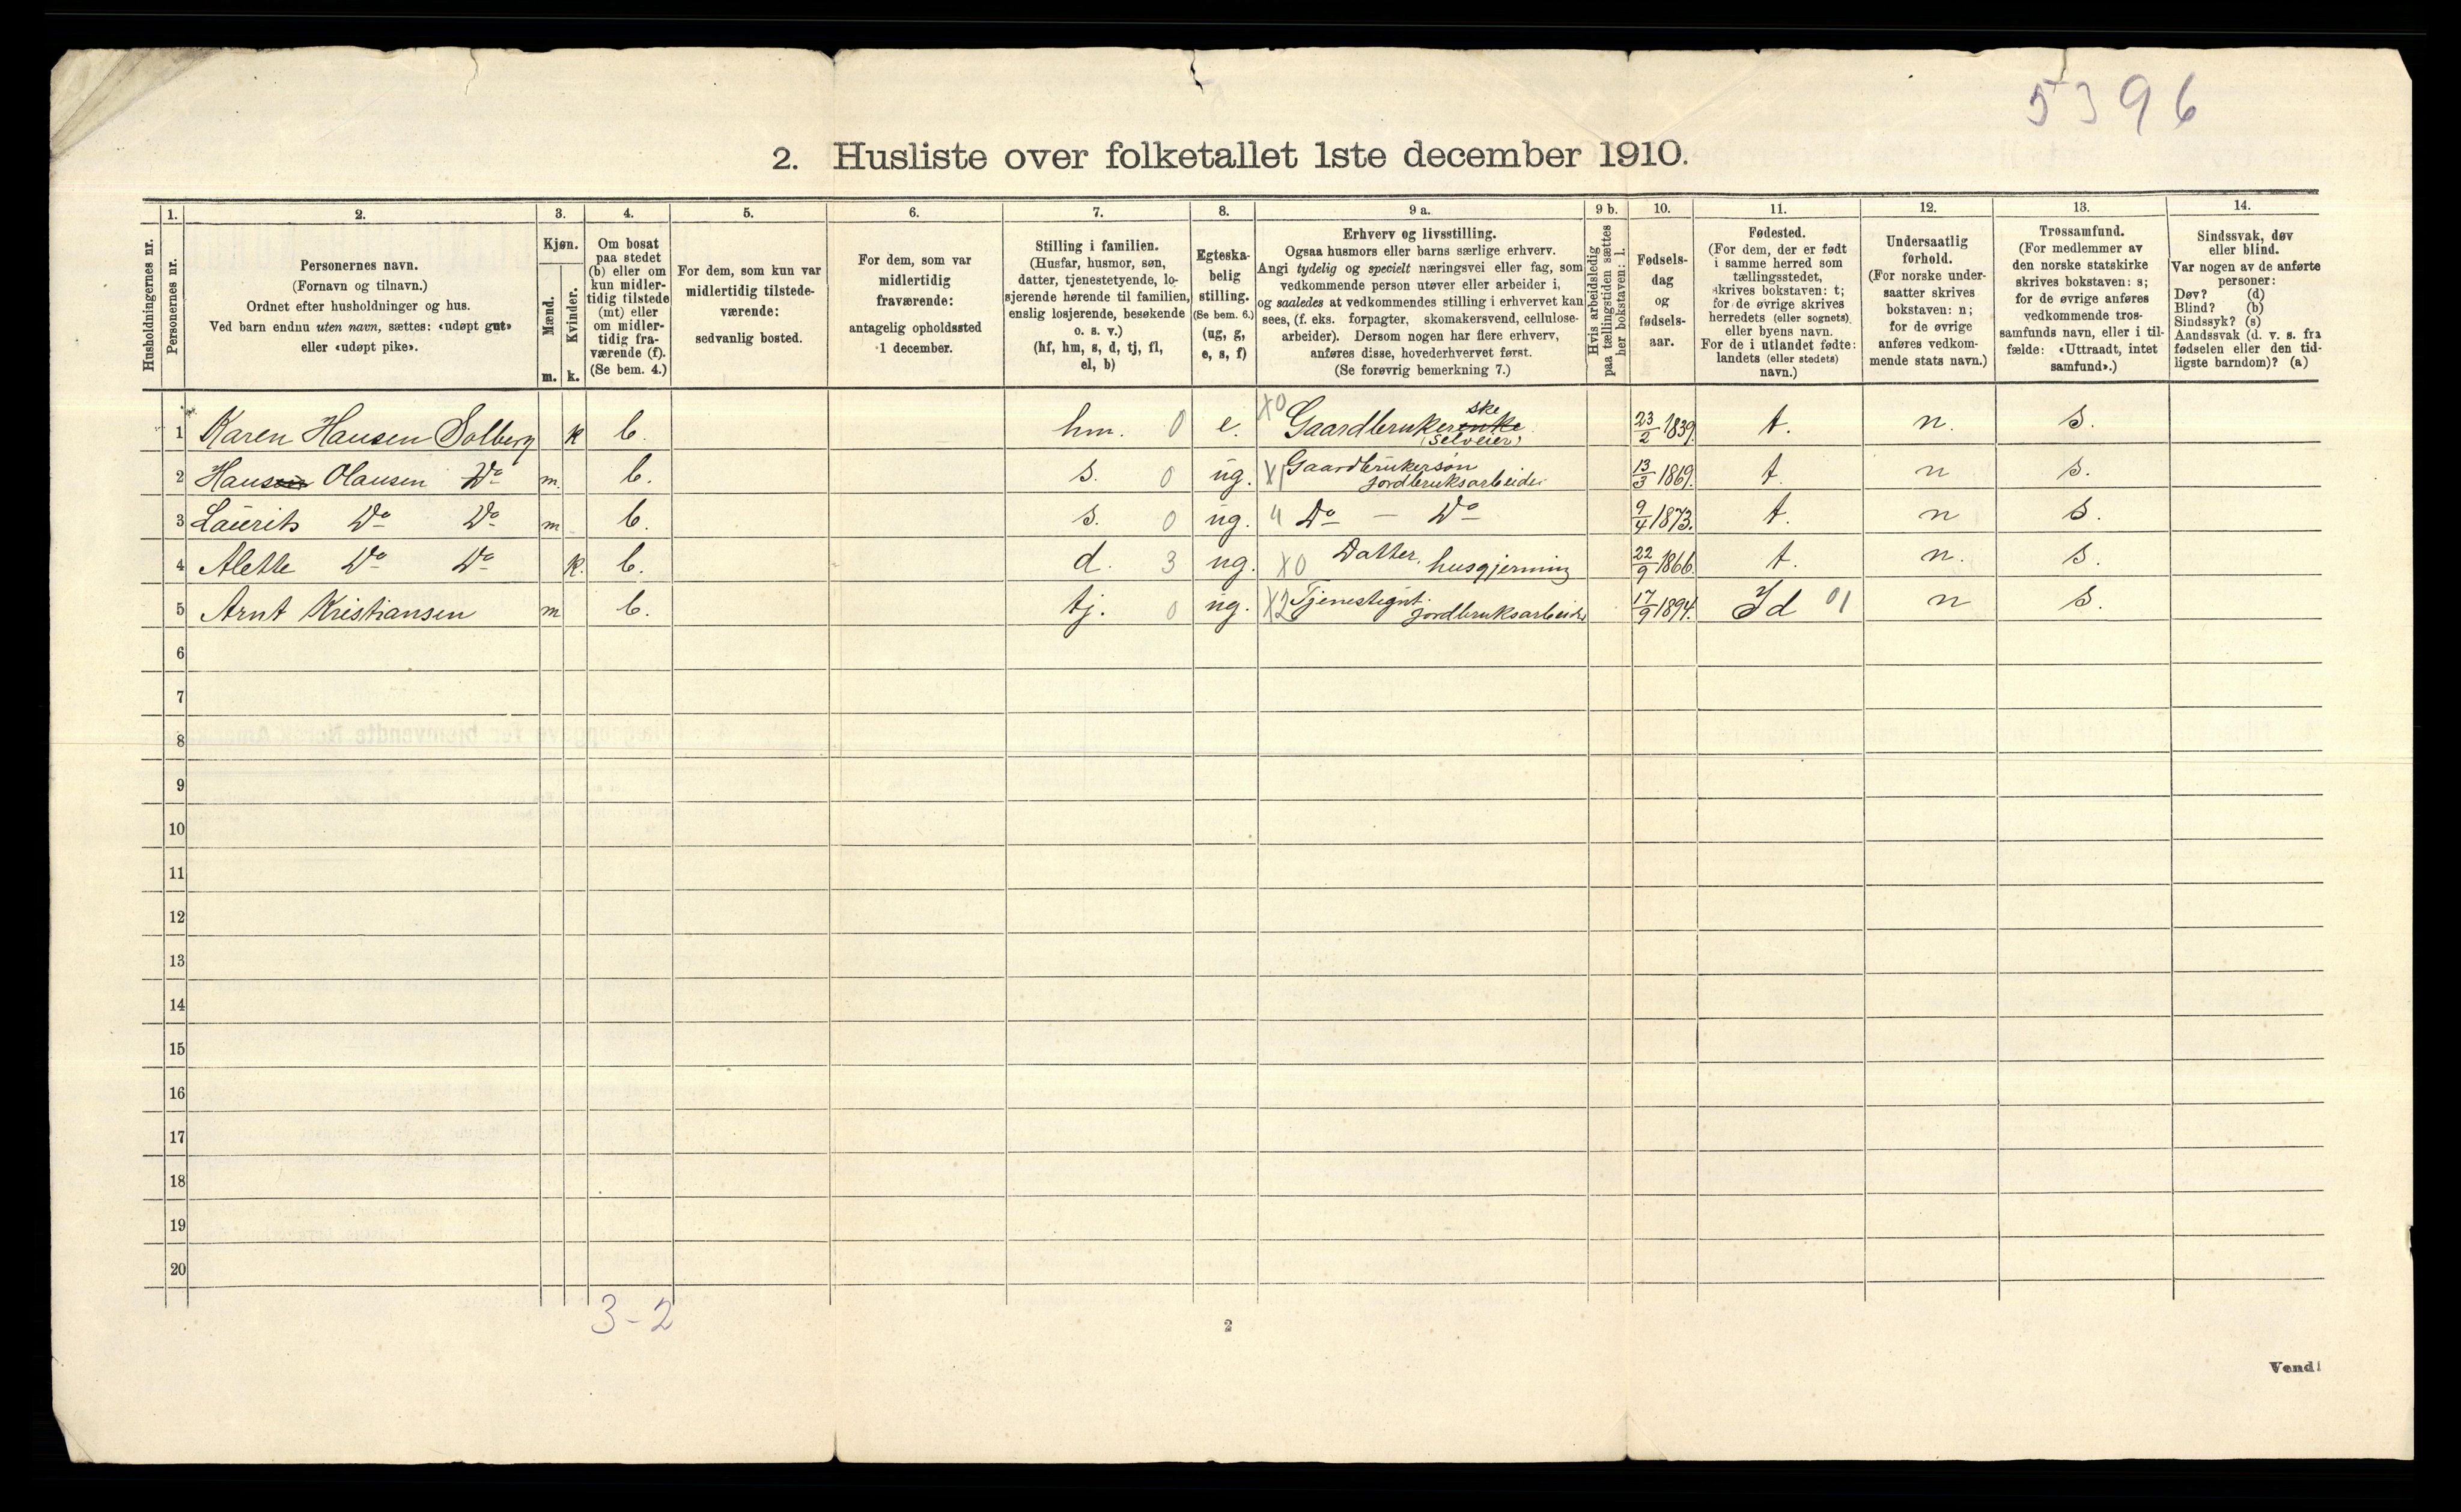 5396
2. Husliste over folketallet 1ste december 1910.
Husholdningernes nr.
1. Personernes nr.
2. Personernes navn.
(Fornavn og tilnavn.)
Ordnet efter husholdninger og hus.
Ved barn endnu uten navn, sættes: «udøpt gut»
eller «udøpt pike».
3. Kjøn.
Mænd. m.
Kvinder. k.
4. Om bosat
paa stedet
(b) eller om
kun midler-
tidig tilstede
(mt) eller
om midler-
tidig fra-
værende (f).
(Se bem. 4.)
5. For dem, som kun var
midlertidig tilstede-
værende:
sedvanlig bosted.
6. For dem, som var
midlertidig
fraværende:
antagelig opholdssted
1 december.
7. Stilling i familien.
(Husfar, husmor, søn,
datter, tjenestetyende, lo-
sjerende hørende til familien,
enslig losjerende, besøkende
o. s. v.)
(hf, hm, s, d, tj, fl,
el, b)
8. Egteska-
belig
stilling.
(Se bem. 6.)
(ug, g,
e, s, f)
9 a. Erhverv og livsstilling.
Ogsaa husmors eller barns særlige erhverv.
Angi tydelig og specielt næringsvei eller fag, som
vedkommende person utøver eller arbeider i,
og saaledes at vedkommendes stilling i erhvervet kan
sees, (f. eks. forpagter, skomakersvend, cellulose-
arbeider). Dersom nogen har flere erhverv,
anføres disse, hovederhvervet først.
(Se forøvrig bemerkning 7.)
9 b. Hvis arbeidsledig
paa tællingstiden sættes
her bokstaven: l.
10. Fødsels-
dag
og
fødsels-
aar.
11. Fødested.
(For dem, der er født
i samme herred som
tællingsstedet,
skrives bokstaven: t;
for de øvrige skrives
herredets (eller sognets)
eller byens navn.
For de i utlandet fødte:
landets (eller stedets)
navn.)
12. Undersaatlig
forhold.
(For norske under-
saatter skrives
bokstaven: n;
for de øvrige
anføres vedkom-
mende stats navn.)
13. Trossamfund.
(For medlemmer av
den norske statskirke
skrives bokstaven: s;
for de øvrige anføres
vedkommende tros-
samfunds navn, eller i til-
fælde: «Uttraadt, intet
samfund».)
14. Sindssvak, døv
eller blind.
Var nogen av de anførte
personer:
Døv? (d)
Blind? (b)
Sindssyk? (s)
Aandssvak (d. v. s. fra
fødselen eller den tid-
ligste barndom)? (a)
1 Karen Hansen Solberg k b. hm. 0 e. X0 Gaardbrukerenke ske (Selveier) 23/2 1839. t. n. s.
2 Hansen Olausen Do m. b. s. 0 ug. X1 Gaardbrukersøn jordbruksarbeider 13/3 1869. t. n s.
3 Laurits Do Do m b. s. 0 ug. " Do — Do 9/4 1873. t. n s.
4 Alette Do Do k. b. d. 3 ug. X0 Datter, husgjerning 22/9 1866. t. n. s.
5 Arnt Kristiansen m b. tj. 0 ug. X2 Tjenestegut. jordbruksarbeider 17/9 1894. Id 01 n s.
6
7
8
9
10
11
12
13
14
15
16
17
18
19
20
3-2
2
Vend!